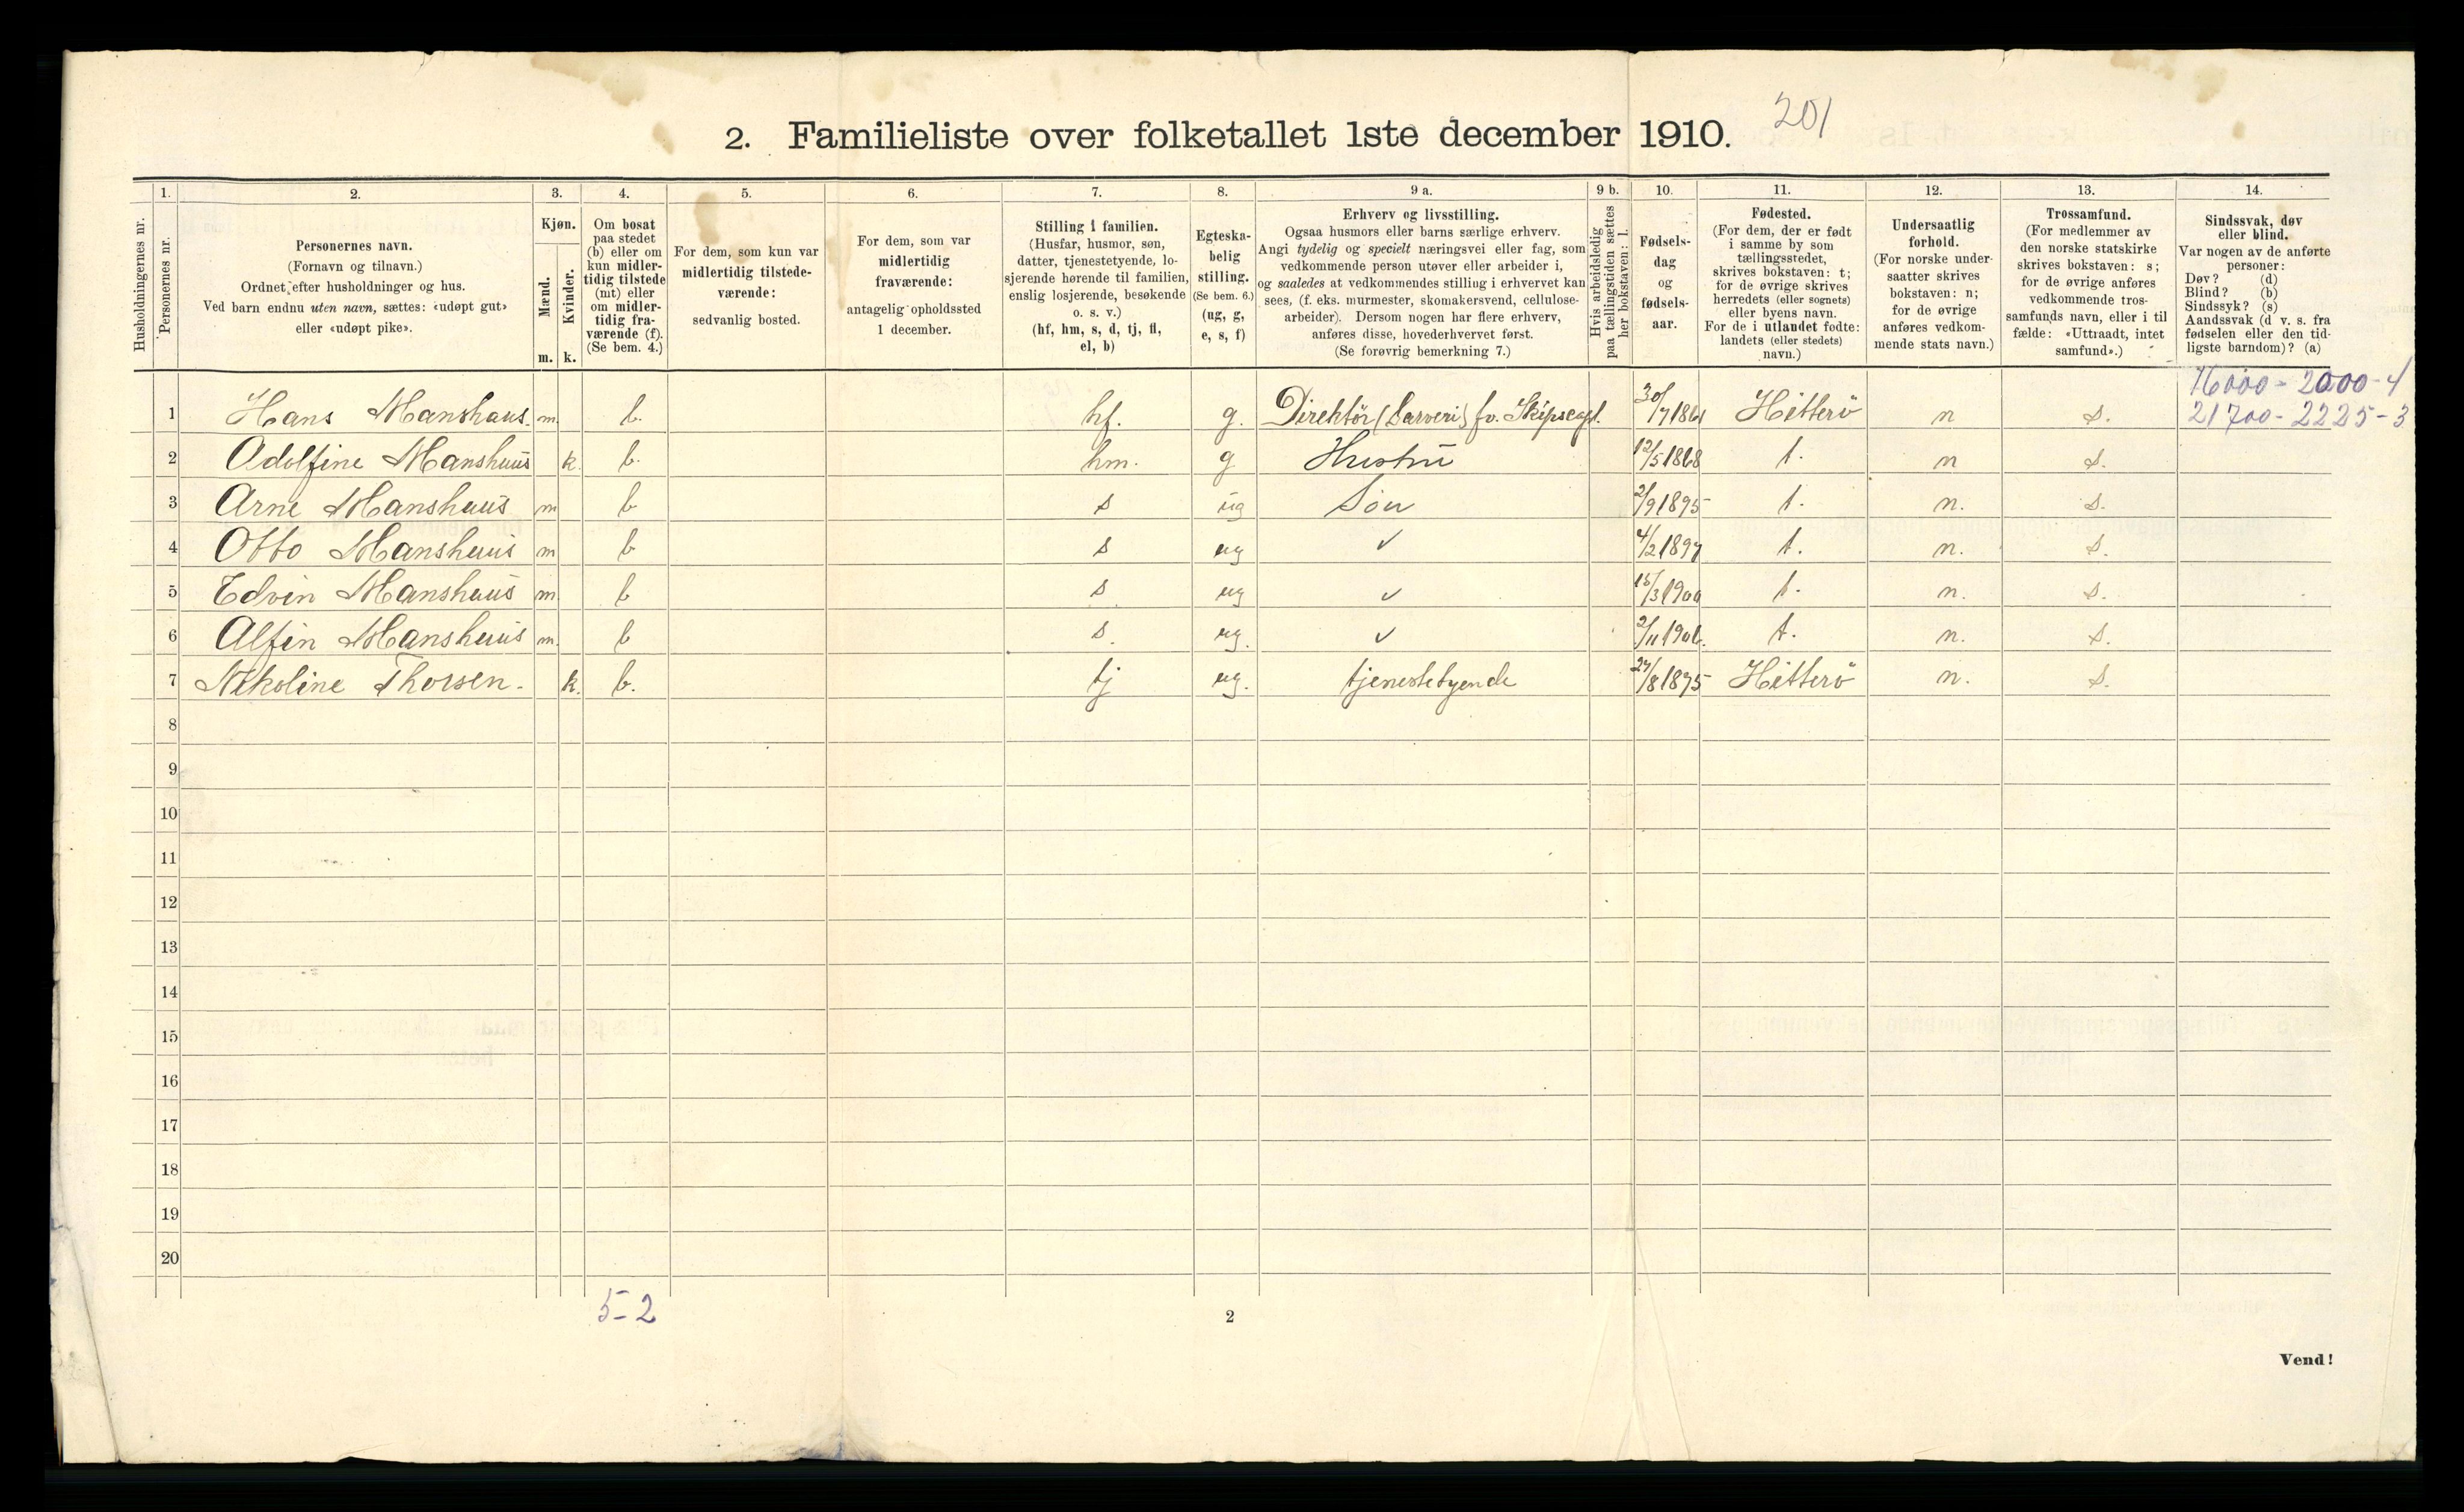 201
2. Familieliste over folketallet 1ste december 1910.
1. 2. 3. 4. 5. 6. 7. 8. 9 a. 9 b. 10. 11. 12. 13. 14.
Husholdningernes nr.
Personernes nr.
Personernes navn.
(Fornavn og tilnavn.)
Ordnet efter husholdninger og hus.
Ved barn endnu uten navn, sættes: «udøpt gut»
eller «udøpt pike».
Kjøn.
Mænd.
Kvinder.
m. k.
Om bosat
paa stedet
(b) eller om
kun midler-
tidig tilstede
(mt) eller
om midler-
tidig fra-
værende (f).
(Se bem. 4.)
For dem, som kun var
midlertidig tilstede-
værende:
sedvanlig bosted.
For dem, som var
midlertidig
fraværende:
antagelig opholdssted
1 december.
Stilling i familien.
(Husfar, husmor, søn,
datter, tjenestetyende, lo-
sjerende hørende til familien,
enslig losjerende, besøkende
o. s. v.)
(hf, hm, s, d, tj, fl,
el, b)
Egteska-
belig
stilling.
(Se bem. 6.)
(ug, g,
e, s, f)
Erhverv og livsstilling.
Ogsaa husmors eller barns særlige erhverv.
Angi tydelig og specielt næringsvei eller fag, som
vedkommende person utøver eller arbeider i,
og saaledes at vedkommendes stilling i erhvervet kan
sees, (f. eks. murmester, skomakersvend, cellulose-
arbeider). Dersom nogen har flere erhverv,
anføres disse, hovederhvervet først.
(Se forøvrig bemerkning 7.)
Hvis arbeidsledig
paa tællingstiden sættes
her bokstaven: l.
Fødsels-
dag
og
fødsels-
aar.
Fødested.
(For dem, der er født
i samme by som
tællingsstedet,
skrives bokstaven: t;
for de øvrige skrives
herredets (eller sognets)
eller byens navn.
For de i utlandet fødte:
landets (eller stedets)
navn.)
Undersaatlig
forhold.
(For norske under-
saatter skrives
bokstaven: n;
for de øvrige
anføres vedkom-
mende stats navn.)
Trossamfund.
(For medlemmer av
den norske statskirke
skrives bokstaven: s;
for de øvrige anføres
vedkommende tros-
samfunds navn, eller i til
fælde: «Uttraadt, intet
samfund».)
Sindssvak, døv
eller blind.
Var nogen av de anførte
personer:
Døv? (d)
Blind? (b)
Sindssyk? (s)
Aandssvak (d. v. s. fra
fødselen eller den tid-
ligste barndom)? (a)
16000 - 2000 - 4
1 Hans Manshaus. m. b. hf. g. Direktör (Garveri) fv. Skipscapt. 30/7 1861 Hitterö n s. 21700 - 2225 - 3
2 Adolfine Manshaus k. b. hm. g Hustru 12/5 1868 t. n s.
3 Arne Manshaus m b s ug Sön 2/9 1895 t. n. s.
4 Otto Manshaus m b s ug ✓ 4/2 1897 t. n. s.
5 Edvin Manshaus m b s ug ✓ 15/3 1900 t. n. s.
6 Alfin Manshaus m. b s. ug. ✓ 2/11 1906. t. n. s.
7 Nikoline Thorsen. k. b. tj ug. tjenestetyende 27/8 1875 Hitterö n. s.
8
9
10
11
12
13
14
15
16
17
18
19
20
5 - 2
2
Vend!